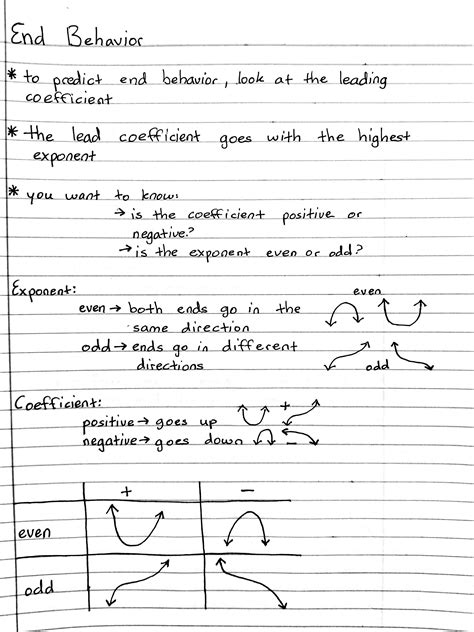 End Behavior
* to predict end behavior, look at the leading
coefficient
* the lead coefficient goes with the highest
exponent
* you want to know:
→ is the coefficient positive or
negative?
→ is the exponent even or odd?
Exponent:
even → both ends go in the
same direction
odd → ends go in different
directions
even
odd
Coefficient:
positive → goes up +
negative → goes down −
+ −
even
odd